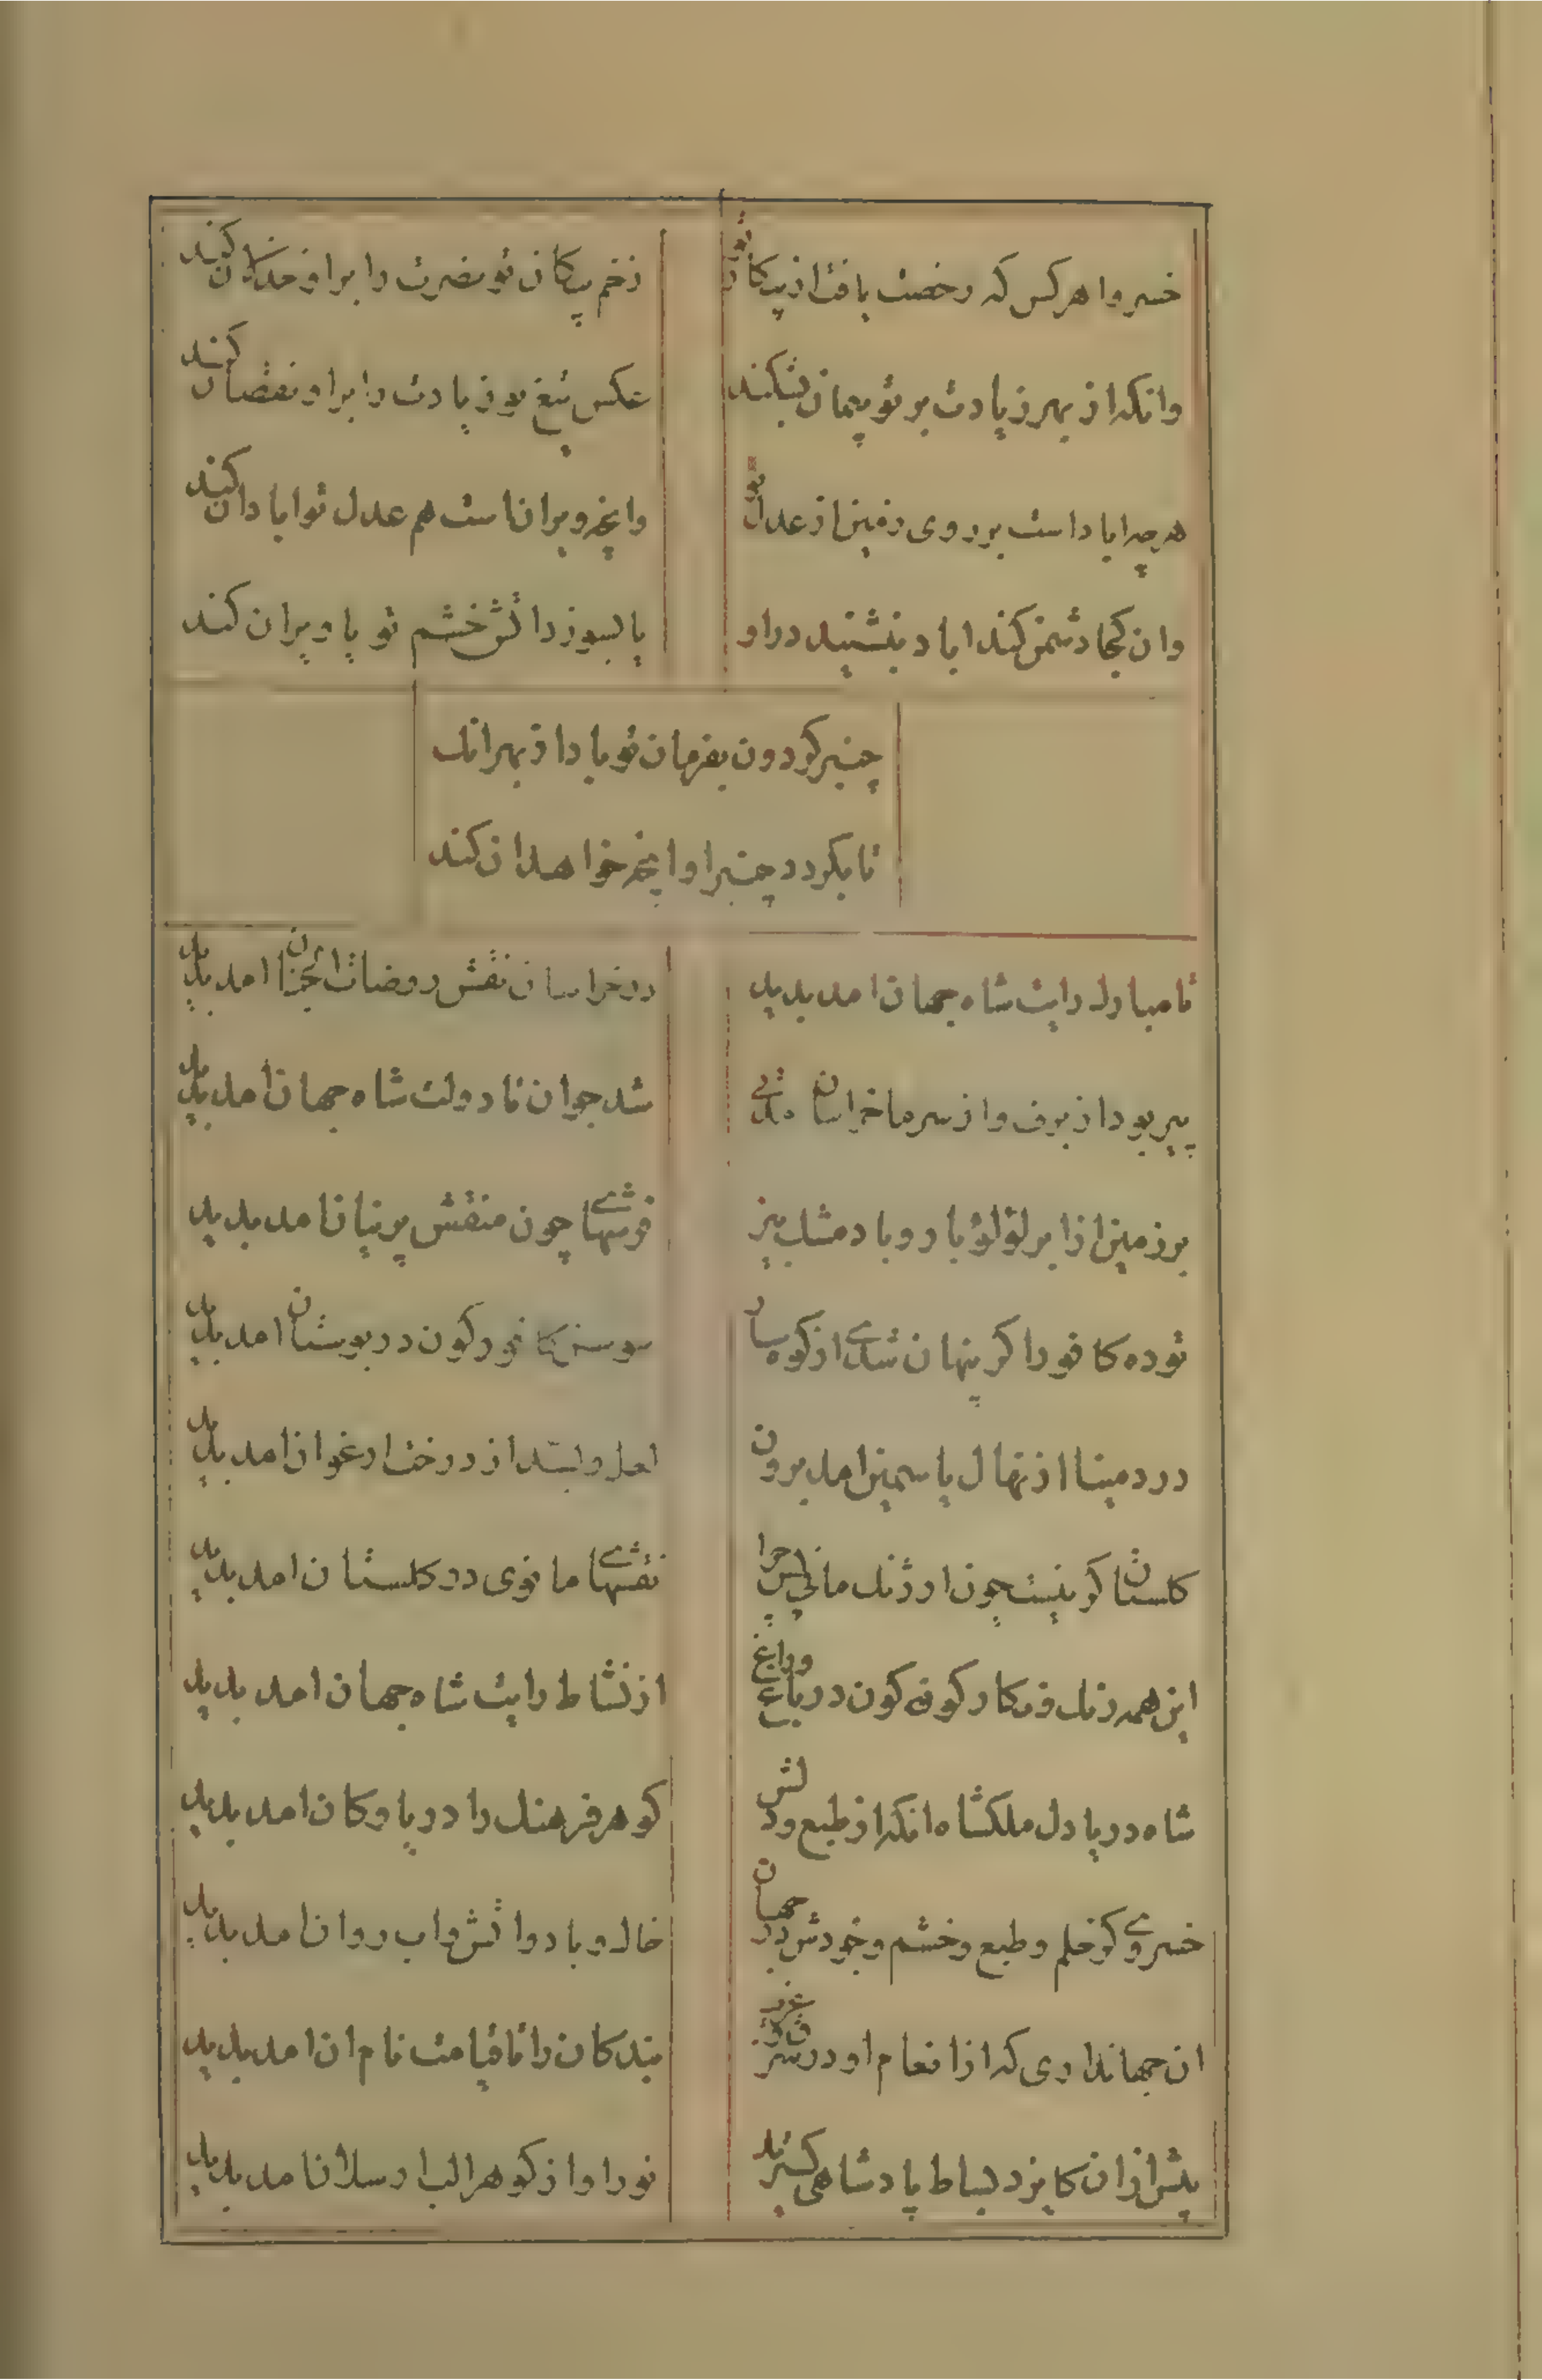 خسروا هر کس که رخصت یافت از پیکان تو
زخم پیکان تو نصرت را بر او خندان کند
وانکه از بهر زیادت بر تو پیمان بشکند
عکس تیغ تو زیادت را بر او نقصان کند
هرچه اباداست بر روی زمین از عدل تو
وانچه ویران است هم عدل تو ابادان کند
وان کجا دشمن کند اباد ننشیند در او
یا بسوزد اتش خشم تو یا ویران کند
چنبر کردون بفرمان تو باد از بهر انک
تا بکردد چنبر او انچه خواهد ان کند
تا مبارک رایت شاه جهان امد پدید
در خراسان نقش روضات الجنان امد پدید
پیر بود از برف و از سرما خراسان مدتی
شد جوان تا دولت شاه جهان امد پدید
بر زمین از ابر لؤلؤبار و باد مشک بیز
فرشهائی چون منقش پرنیان امد پدید
توده کافور اکر پنهان شدی از کوهسار
سوسن کافورکون در بوستان امد پدید
درد مینا از نهال یاسمین امد برون
لعل و بسد از درخت ارغوان امد پدید
کلستان کر نیست چون ارژنک مانی پس چرا
نقشهای مانوی در کلستان امد پدید
این همه رنک و نکار کونه کون در باغ و راغ
از نشاط رایت شاه جهان امد پدید
شاه دریا دل ملکشاه انکه از طبع و دلش
کوهر فرهنک را دریا و کان امد پدید
خسروی کز حلم و طبع و خشم و جودش در جهان
خاک و باد و اتش و اب روان امد پدید
ان جهانداری که از انعام او در شرق و غرب
بندکان را تا قیامت نام و نان امد پدید
پیش از ان کایزد بساط پادشاهی کسترید
نور او از کوهر الب ارسلان امد پدید